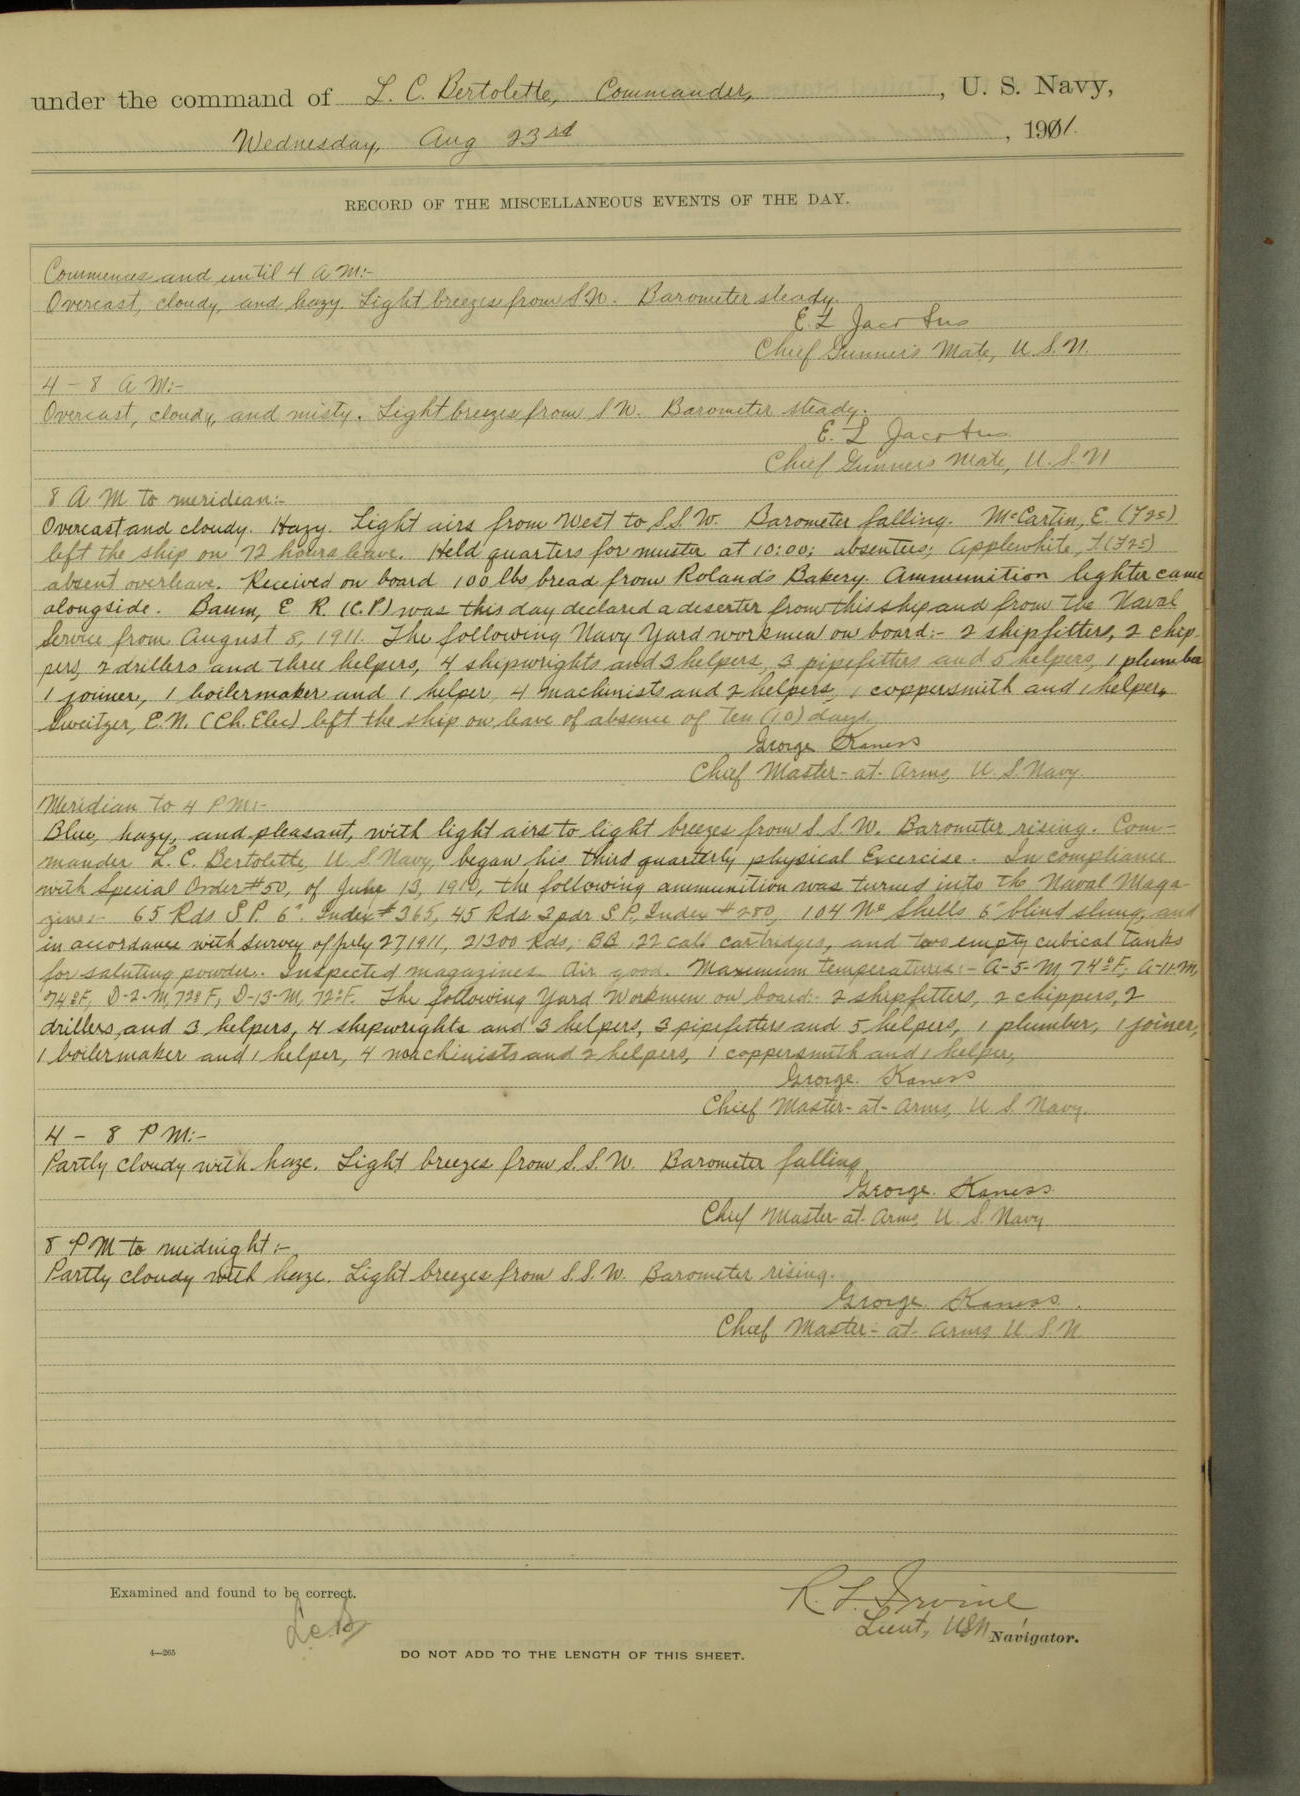 under the command of L. C. Bertolette, Commander, , U. S. Navy,
Wednesday, Aug 23rd , 1911.
RECORD OF THE MISCELLANEOUS EVENTS OF THE DAY.
Commences and until 4 A M:-
Overcast, cloudy, and hazy. Light breezes from S.W. Barometer steady.
E. L. Jacobus
Chief Gunner's Mate, U.S.N.
4 - 8 A M:-
Overcast, cloudy, and misty. Light breezes from S W. Barometer steady.
E. L Jacobus
Chief Gunner's Mate, U.S.N
8 A M to meridian:-
Overcast and cloudy. Hazy. Light airs from West to S.S.W. Barometer falling. McCartin, E. (F2c)
left the ship on 72 hours leave. Held quarters for muster at 10:00; absentees; Applewhite, (F2c)
absent overleave. Received on board 100 lbs bread from Roland's Bakery. Ammunition lighter came
alongside. Baum, E R. (C.P.) was this day declared a deserter from this ship and from the Naval
Service from August 8, 1911. The following Navy Yard workmen on board:- 2 shipfitters, 2 chip-
pers, 2 drillers and three helpers, 4 shipwrights and 3 helpers, 3 pipefitters and 5 helpers, 1 plumber
1 joiner, 1 boilermaker and 1 helper, 4 machinists and 2 helpers, 1 coppersmith and 1 helper,
Sweitzer, E.N. (Ch. Elec) left the ship on leave of absence of Ten (10) days.
George Kaness
Chief Master-at-Arms, U.S. Navy.
Meridian to 4 P M:-
Blue, hazy, and pleasant, with light airs to light breezes from S.S.W. Barometer rising. Com-
mander L. C. Bertolette, U.S. Navy, began his third quarterly physical Excercise. In compliance
with Special Order #50, of June 13, 1910, the following ammunition was turned into the Naval Maga-
zine:- 65 Rds S.P. 6". Index #365, 45 Rds. 3 pdr S.P., Index #280, 104 No Shells 5" blind slung, and
in accordance with survey of July 27, 1911, 21300 Rds, BB .22 cal. cartridges, and two empty cubical tanks
for saluting powder. Inspected magazines. Air good. Maximum temperatures:- A-5-M, 74°F, A-11-M,
74°F, D-2-M, 72°F, D-13-M, 72°F. The following Yard Workmen on board:- 2 shipfitters, 2 chippers, 2
drillers, and 3 helpers, 4 shipwrights and 3 helpers, 3 pipefitters and 5 helpers, 1 plumber, 1 joiner,
1 boilermaker and 1 helper, 4 machinists and 2 helpers, 1 coppersmith and 1 helper,
George. Kaness
Chief Master-at-Arms, U.S. Navy.
4 - 8 P M:-
Partly cloudy with haze. Light breezes from S.S.W. Barometer falling
George. Kaness.
Chief Master-at-Arms, U.S. Navy
8 P M to midnight:-
Partly cloudy with haze. Light breezes from S.S.W. Barometer rising.
George. Kaness.
Chief Master-at-Arms U.S.N
Examined and found to be correct.
L.C.B
R. L. Irvine
Lieut, USN, Navigator.
4—265
DO NOT ADD TO THE LENGTH OF THIS SHEET.